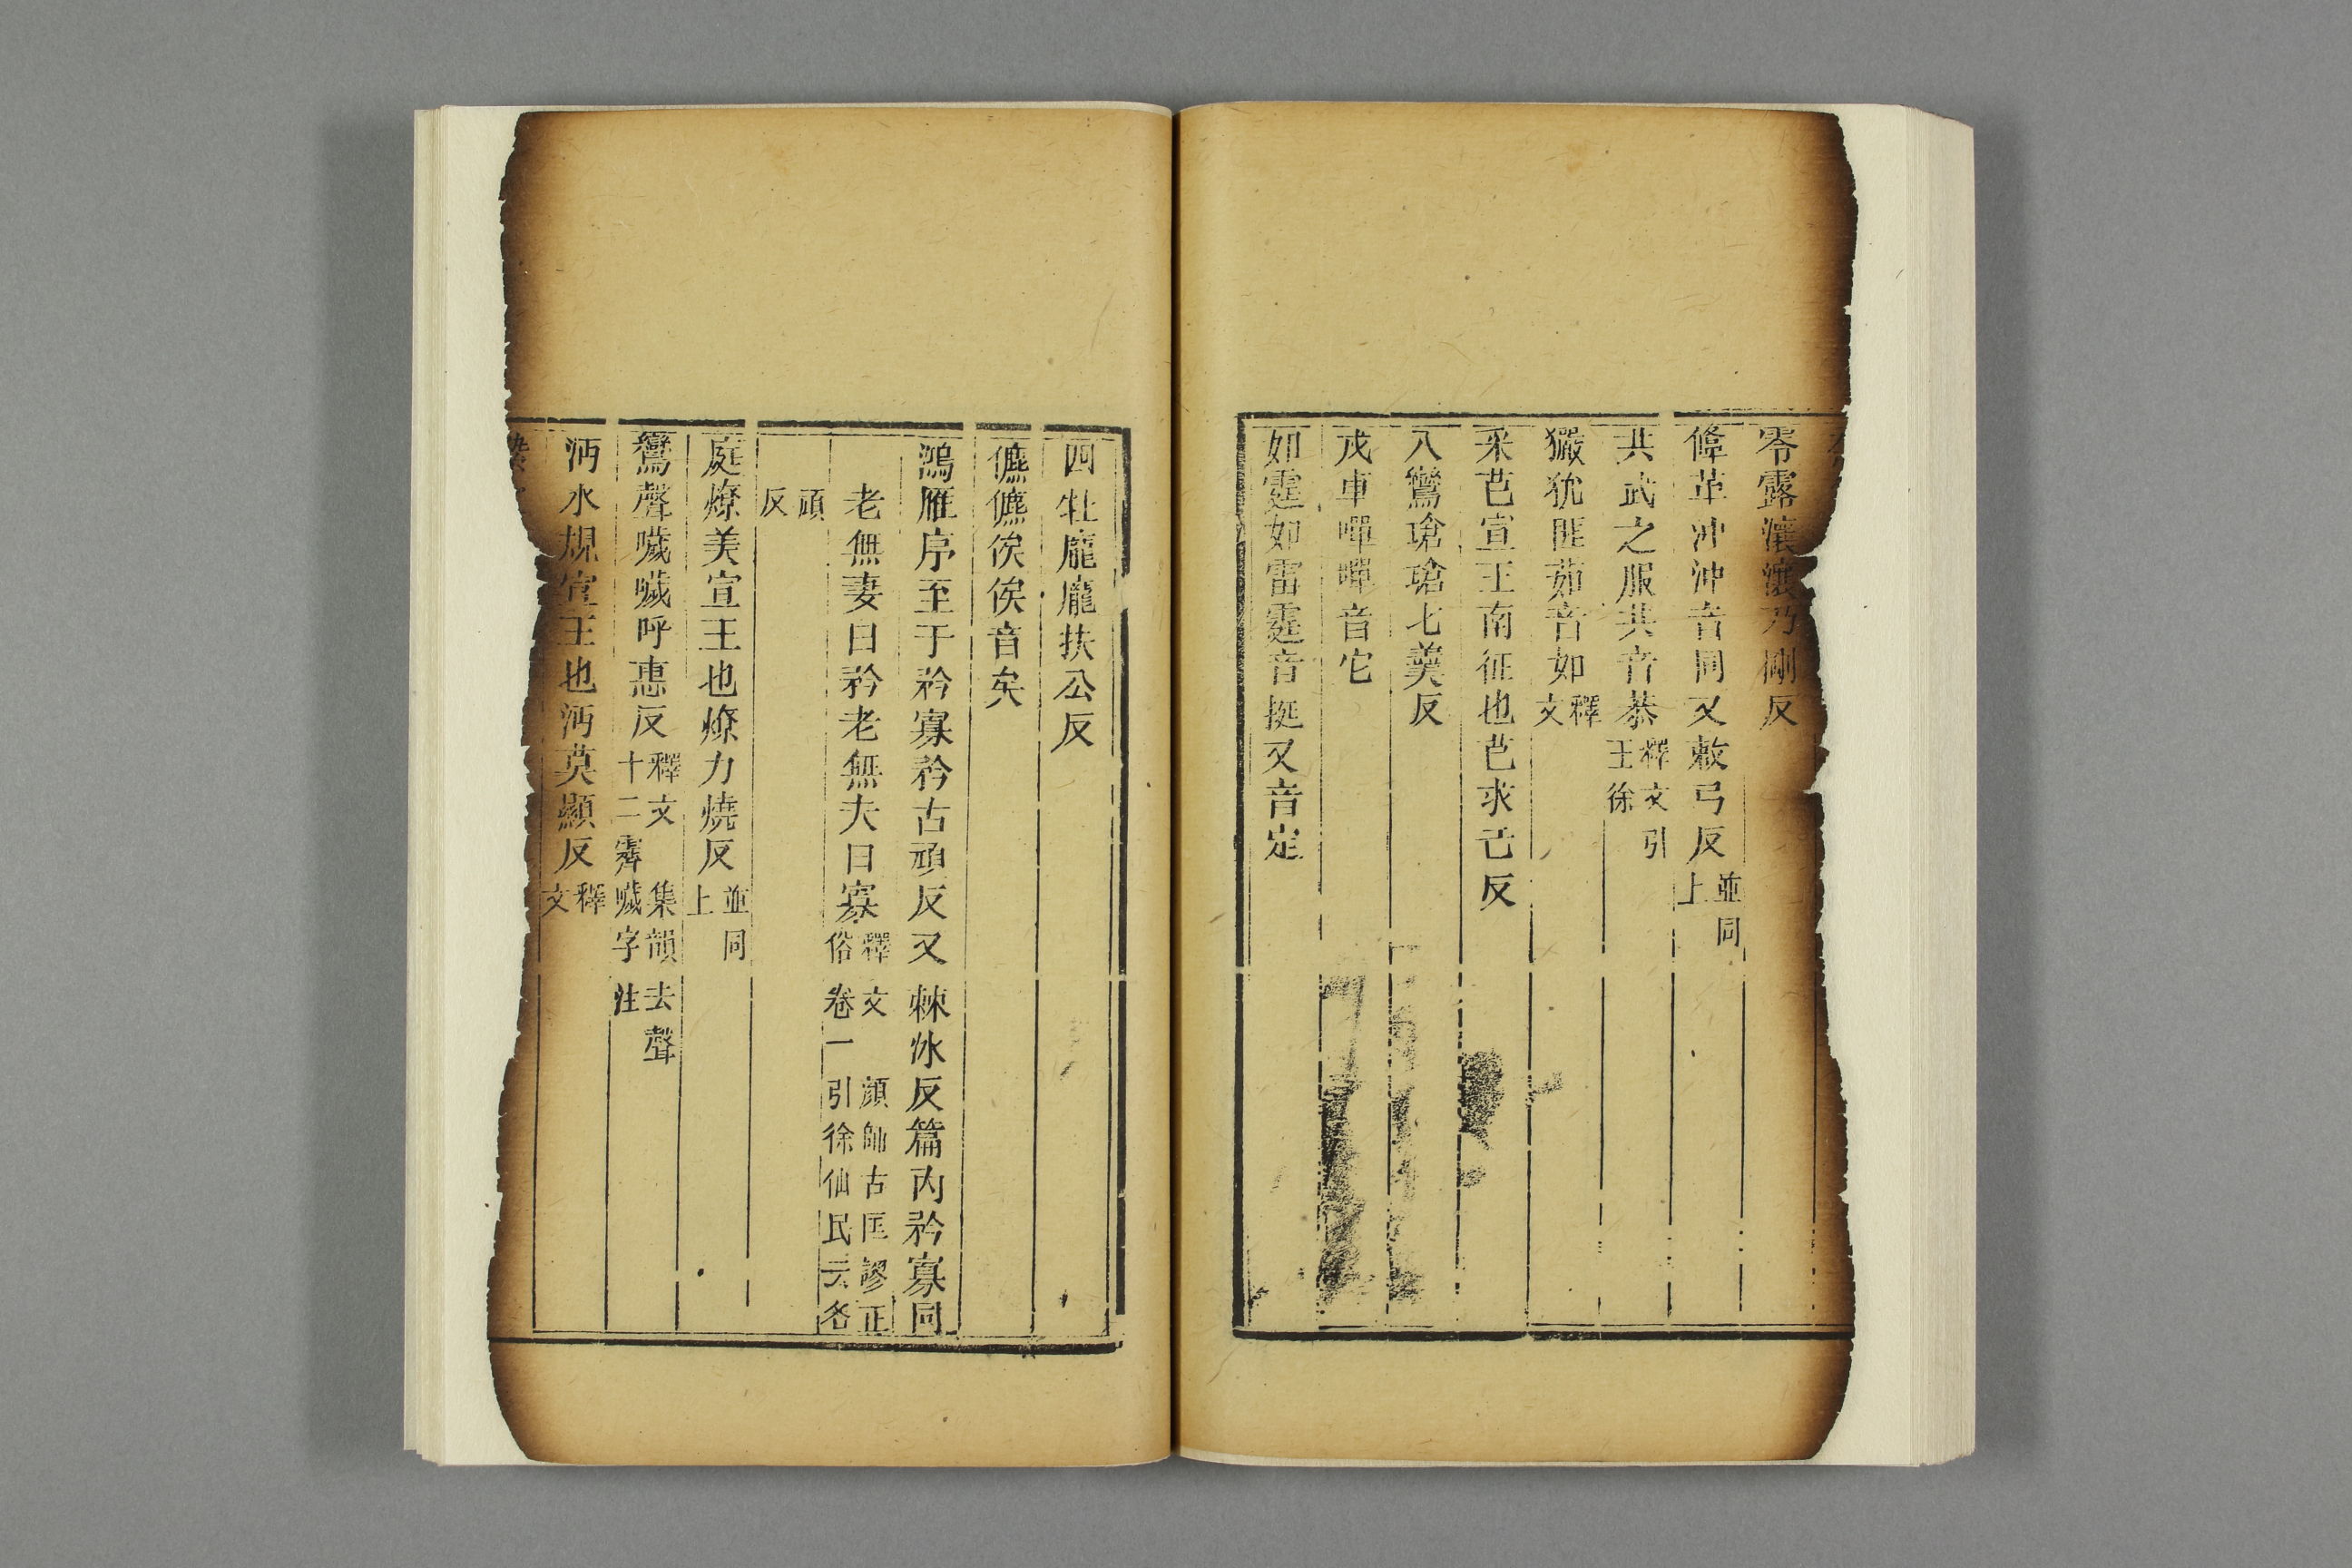 零露瀼瀼乃剛反
鞗革沖沖音同又敕弓反並同上
共武之服共音恭釋文引王徐
玁狁匪茹音如釋文
采芑宣王南征也芑求己反
八鸞瑲瑲七羹反
戎車嘽嘽音它
如霆如雷霆音挺又音定
四牡龐龐扶公反
儦儦俟俟音矣
鴻雁序至于矜寡矜古頑反又棘冰反篇内矜寡同
老無妻曰矜老無夫曰寡釋文 顏師古匡謬正俗卷一引徐仙民云各
頑反
庭燎美宣王也燎力燒反並同上
鸞聲噦噦呼惠反釋文 集韻去聲十二霽噦字注
沔水規宣王也沔莫顯反釋文